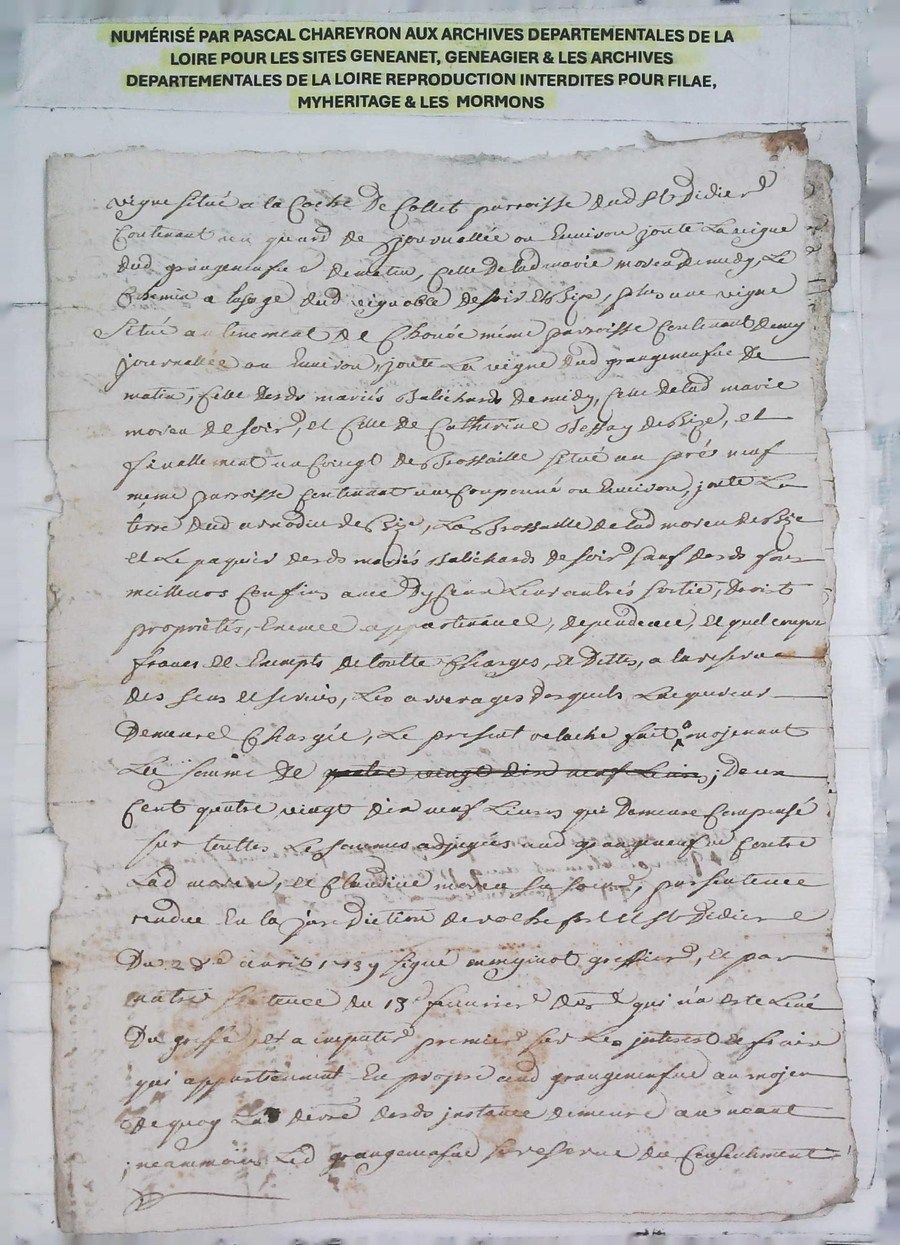 NUMÉRISÉ PAR PASCAL CHAREYRON AUX ARCHIVES DEPARTEMENTALES DE LA
LOIRE POUR LES SITES GENEANET, GENEAGIER & LES ARCHIVES
DEPARTEMENTALES DE LA LOIRE REPRODUCTION INTERDITES POUR FILAE,
MYHERITAGE & LES MORMONS
vigne situé a la Coste De Collet parroisse dud St Didier
Contenant un quard de journallée ou Environ joute La vigne
dud grangeneufve de matin, Celle de lad marie moren de midy, Le
Chemin a lusage dud vignoble de soir et bize, plus une vigne
Situé au tinement de même parroisse Contenant demy
journallée ou Environ, joute La vigne dud grangeneufve de
matin, Celle desds mariés de midy, Celle de lad marie
moren de soir, et Celle de Catherine de bize, et
finallement un Coingt de Brossaille situé au prés neuf
même parroisse Contenant une Couponné ou Environ, joute La
terre dud de bize, La Brossaille de lad moren de bize
et Le paquier desds mariés de soir sauf desds
meilleurs Confins avec Leur antrés sortie, Droits
proprietés, appartenance, dependence, et quelconque
francs et Exempts de toutte Charges, et Dettes, a la reserve
des sens et servis, Les arrerages desquels Lacquereur
Demeure Chargée, Le present relache fait mojenant
La somme de quatre vingt dix neuf Livres, deux
Cent quatre vingt dix neuf Livres qui Demeure Compensé
sur touttes Les sommes adjugées aud grangeneufve Contre
Lad moren, et Claudine moren sa soeur, par sentence
rendue En la jurediction de rochefort et St Didier
Du avril signé greffier, et par
autre sentence du 13e feuvrier qui n'a esté Levé
Du greffe, et a imputer premier sur Les interest et fraix
qui appartiennent En propre aud grangeneufve au mojen
de quoy desds instance demeure au neant
neammoins Led grangeneufve se reserve du Consentement